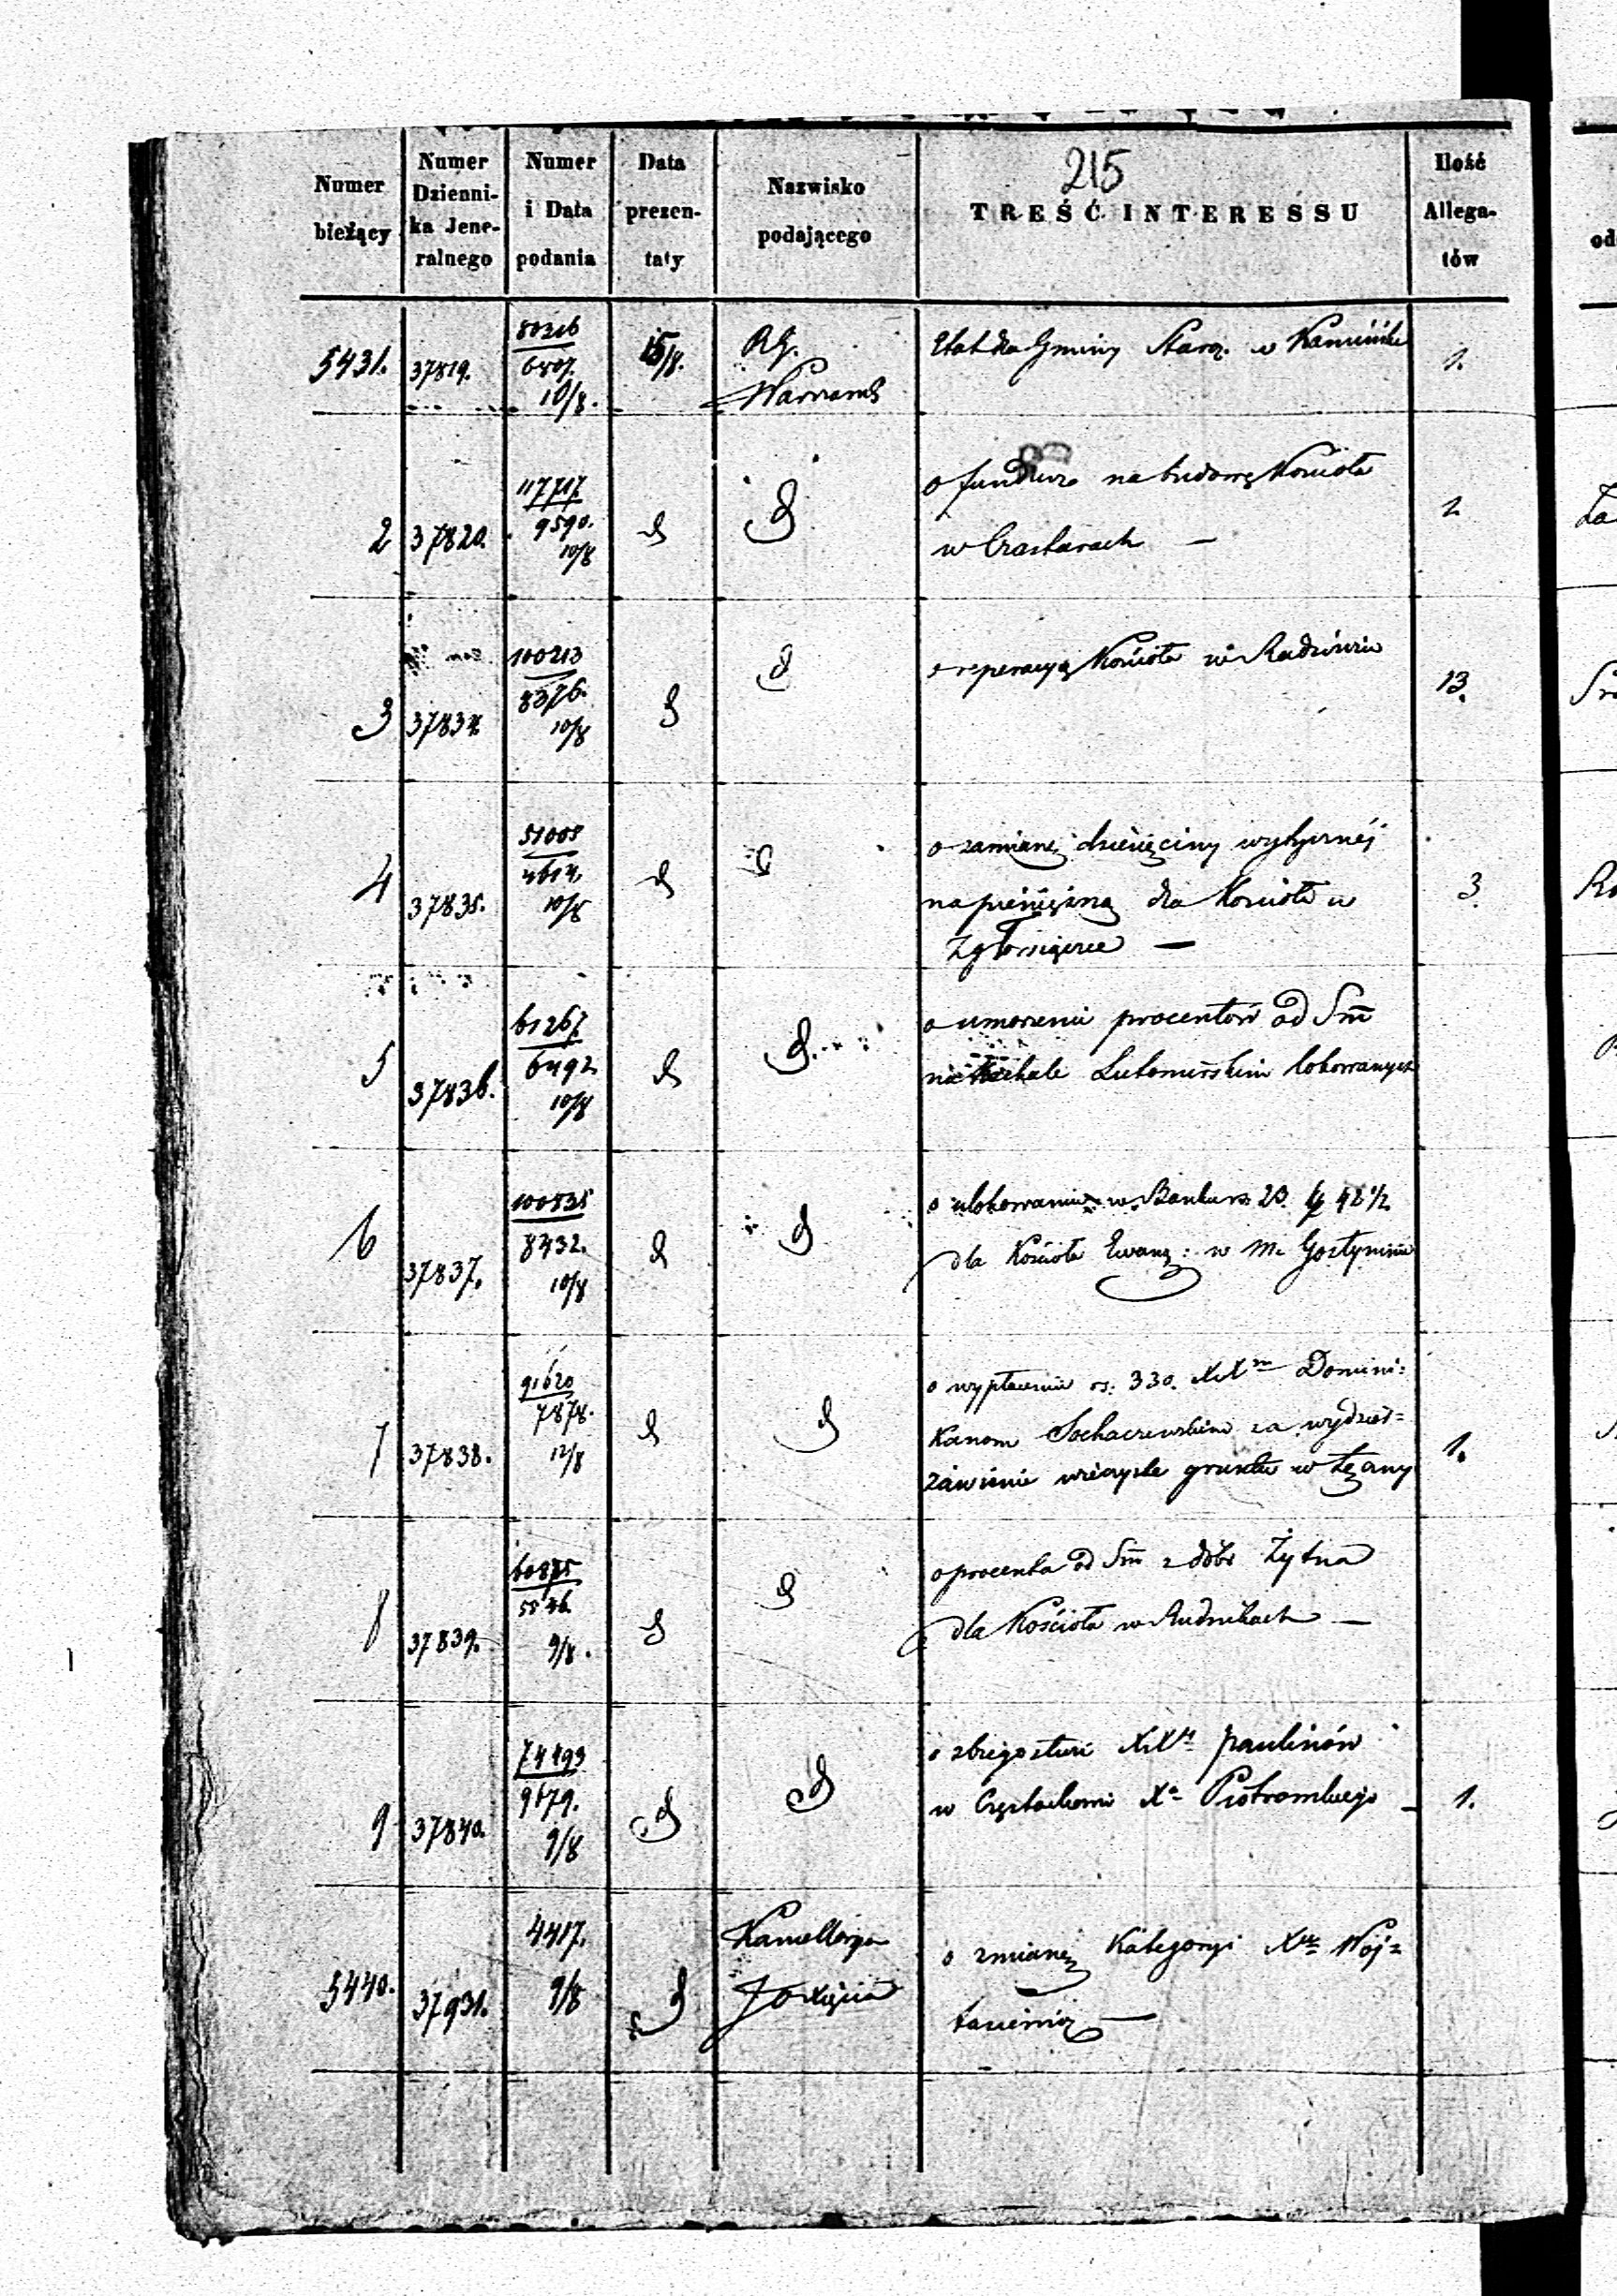 215
Numer bieżący
Numer Dzienni- ka Jene- ralnego
Numer i Data podania
Data prezen- taty
Nazwisko podającego
TREŚĆ INTERESSU
Ilość Allega- tów
5431. 37819. 80316 10/8. 15/8. R.G. Etat dla Gminy Staroz. w Kamińsku 1.
Warszaws
2 37820. 117717 9590. 10/8 d d o fundusz na budowę Kościoła 2
w Czastarach —
3 37834. 100213 8376. 10/8 d d o reperacyą Kościoła w Radziwiu 13.
4 37835. 51005 4614. 10/8 d d o zamianę dziesięciny wytycznéj 3
na pieniężną dla Kościoła w
Zgłowiącce —
5 37836. 61267 6492 10/8 d d. o umorzenie procentów od Sm̄
Lutomirskim lokowanych
6 37837. 100835 8432. 10/8 d d o ulokowanie w Banku rs 23 k 42 1/2
dla Kościoła Ewang: w m. Gostyninie
7 37838. 91620 7878. 12/8 d d o wypłacenie rs: 330. XX Domini= 1.
kanom Sochaczewskim za wydzier=
żawienie wieczyste gruntu w
8 37839. 60875 9/8. d d o procenta od Sm̄ z dóbr Żytna
dla Kościoła w Rudnikach —
9 37840. 74493 9679. 9/8 d d o zbiegostwie XX Paulinów
w Częstochowie Xa — 1.
5440. 37931. 4417. 9/8 d Kancellarya o zmianę Kategoryi Xdza Woj=
J O Xięcia